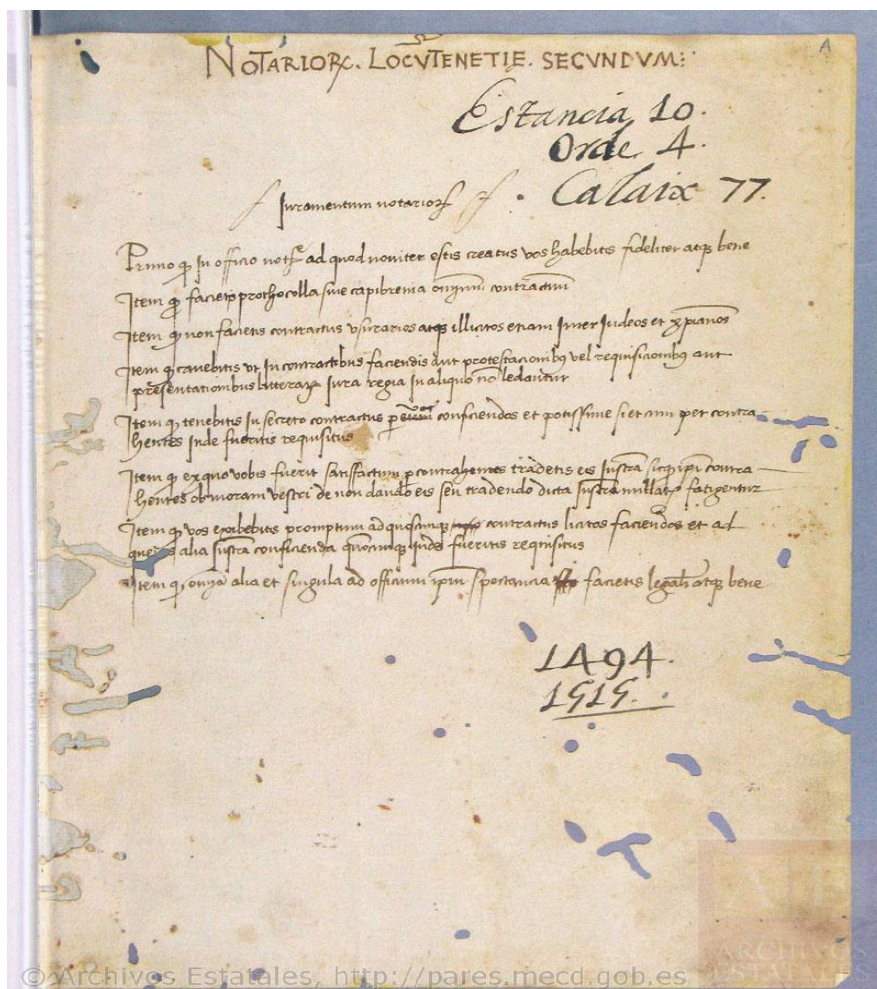 A
NOTARIORꝜ. LOCVTENETIE. SECVNDVM:
Estancia 10.
Orde 4.
Calaix 77.
Juramentum notarioꝝ
Primo ꝙ in officio notẽ ad quod noviter estis creatus vos habebitis fideliter atqꝫ bene
Item ꝙ facietis prothocolla sive capibrevia omniũ contractuũ
Item ꝙ non facietis contractus usurarios atqꝫ illicitos etiam inter Judeos et xp̃ianos
Item ꝙ cavebitis ut in contractibus faciendis aut protestacionibꝫ vel requisicionibꝫ aut
presentationibus litterarꝫ jura regia in aliquo nõ ledantur
Item ꝙ tenebitis in secreto contractus per vos conficiendos et potissime si et cum per contra-
hentes inde fueritis requisitus
Item ꝙ ex quo vobis fuerit satisfactum ꝑ contrahentes tradetis eis instrã sicqꝫ ipi contra-
hentes ob moram vestri de non dando eis seu tradendo dicta instrã nullatꝫ fatigentur
Item ꝙ vos exhibebitis promptum ad quoscũqꝫ contractus licitos faciendos et ad
quevis alia instrã conficienda quocũqꝫ inde fueritis requisitus
Item ꝙ omĩa alia et singula ad officium ipm̃ spectancia facietis legalr̃ atqꝫ bene
1494.
1515.
© Archivos Estatales, http://pares.mecd.gob.es
AE
ARCHIVOS
ESTATALES